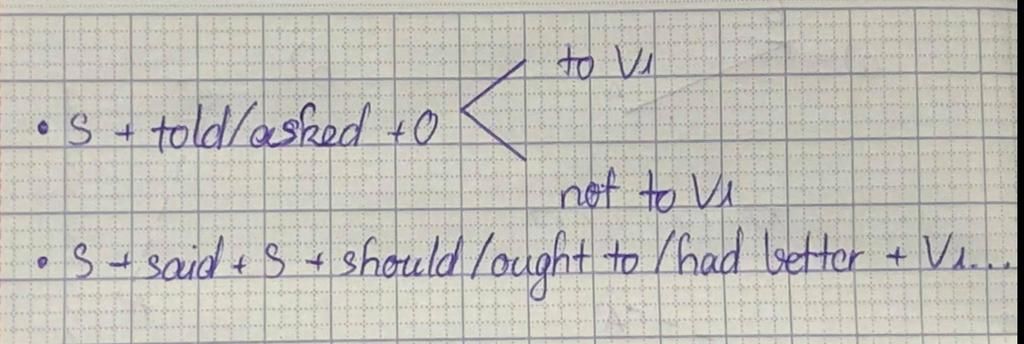 to V1
• S + told/asked + O
not to V1
• S + said + S + should/ought to/had better + V1...